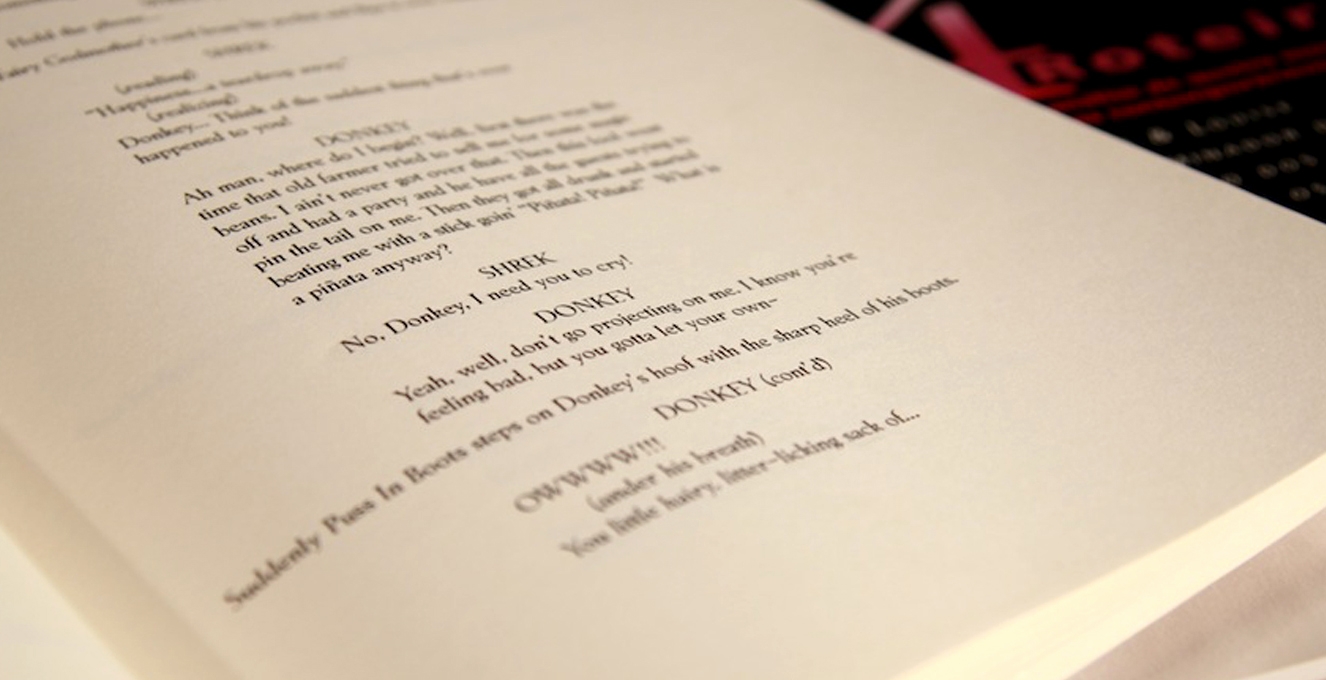 Hold the phone...
Fairy Godmother's card from his
SHREK
(reading)
"Happiness...a teardrop away"
(realizing)
Donkey... Think of the saddest thing that's ever
happened to you!
DONKEY
Ah man, where do I begin? Well, first there was the
time that old farmer tried to sell me for some magic
beans. I ain't never got over that. Then this fool went
off and had a party and he have all the guests trying to
pin the tail on me. Then they got all drunk and started
beating me with a stick goin' "Piñata! Piñata!" What is
a piñata anyway?
SHREK
No, Donkey, I need you to cry!
DONKEY
Yeah, well, don't go projecting on me. I know you're
feeling bad, but you gotta let your own-
Suddenly Puss In Boots steps on Donkey's hoof with the sharp heel of his boots.
DONKEY (cont'd)
OWWWW!!!
(under his breath)
You little hairy, litter-licking sack of...
Roteir
& Louise